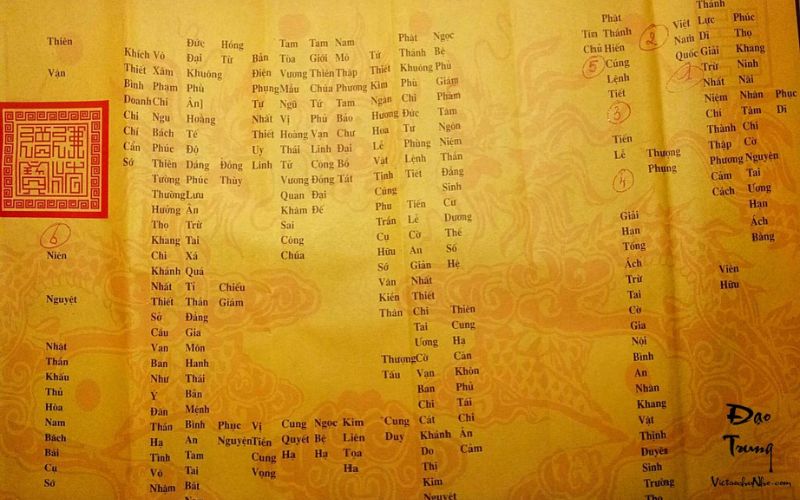 Phục Di
Phúc Thọ Khang Ninh Nãi Nhân Tâm Chi Cờ Nguyện Tai Ương Hạn Ách Bằng
Thánh Lực Di Giải Trừ Nhất Niệm Chí Thành Thập Phương Cảm Cách Viên Hữu
2 Việt Nam Quốc
Thượng Phụng
Phật Thánh Hiến Cúng Lệnh Tiết 3 Tiến Lễ 4 Giải Hạn Tống Ách Trừ Tai Cờ Gia Nội Bình An Nhân Khang Vật Thịnh Duyên Sinh Trường Thọ
Tín Chủ 5
Ngọc Bệ Phủ Giám Phàm Tâm Ngôn Niêm Thần Đẳng Sinh Cư Dương Thế Số Hệ Thiên Cung Hạ Cán Khôn Phủ Tái Chi Ân Cảm
Phật Thánh Khuông Phù Chí Đức Tư Phùng Lệnh Tiết Tiến Lễ Cờ An Giản Nhất Thiết Chi Tai Ương Cờ Vạn Ban Chi Cát Khánh Do Thị Kim Nguyệt
Từ Thiết Kim Ngân Hương Hoa Lễ Vật Tịnh Cúng Phu Trần Cụ Hữu Sớ Văn Kiến Thân Thượng Tấu Cung Duy
Nam Mô Thập Phương Tam Bảo Chư Đại Bồ Tát Kim Liên Tọa Hạ
Tam Giới Thiên Chúa Tứ Phủ Vạn Linh Công Đồng Đại Đế Ngọc Bệ Hạ
Tam Tòa Vương Mẫu Ngũ Vị Hoàng Thái Tử Vương Quan Khâm Sai Công Chúa Cung Quyết Hạ
Bản Điện Phụng Tự Nhất Thiết Uy Linh Vị Tiền Cung Vọng
Hồng Từ Đồng Thùy Chiếu Giám Phục Nguyện
Đức Đại Khuông Phù Ân] Hoàng Tế Đô Dáng Phúc Lưu Ân Trừ Tai Xá Quá Tí Thần Đẳng Gia Môn Hanh Thái Bản Mệnh Bình An Tam Tai Bất
Vò Xâm Phạm Chi Ngu Bách Phúc Thiên Tường Thường Hưởng Thọ Khang Chi Khánh Nhất Thiết Sở Cầu Vạn Ban Như Ý Đãn Thần Hạ Tình Vô Nhậm
Khích Thiết Bình Doanh Chi Chí Cẩn Sớ
Thiên Vận 6 Niên Nguyệt Nhật Thần Khấu Thủ Hòa Nam Bách Bái Cụ Sớ
Đạo Trung
VietnamchuNho.com